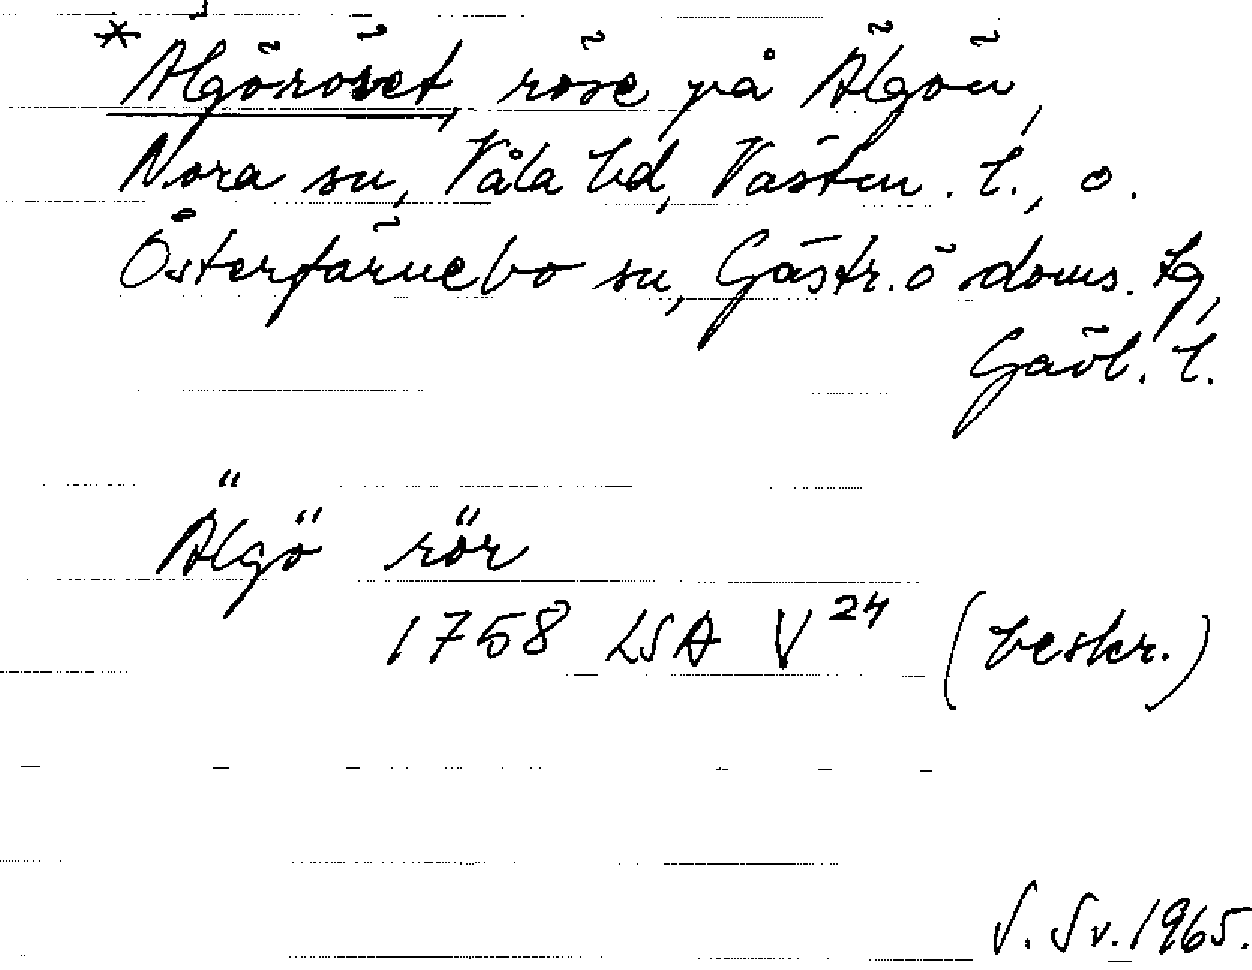 * Älgöröset, röse på Älgön,
Nora sn, Våla hd, Västm. l., o.
Österfärnebo sn, Gästr. ö doms. tg,
Gävl. l.
Älgö rör
1758 LSA V 24 (beskr.)
S. Sv. 1965.